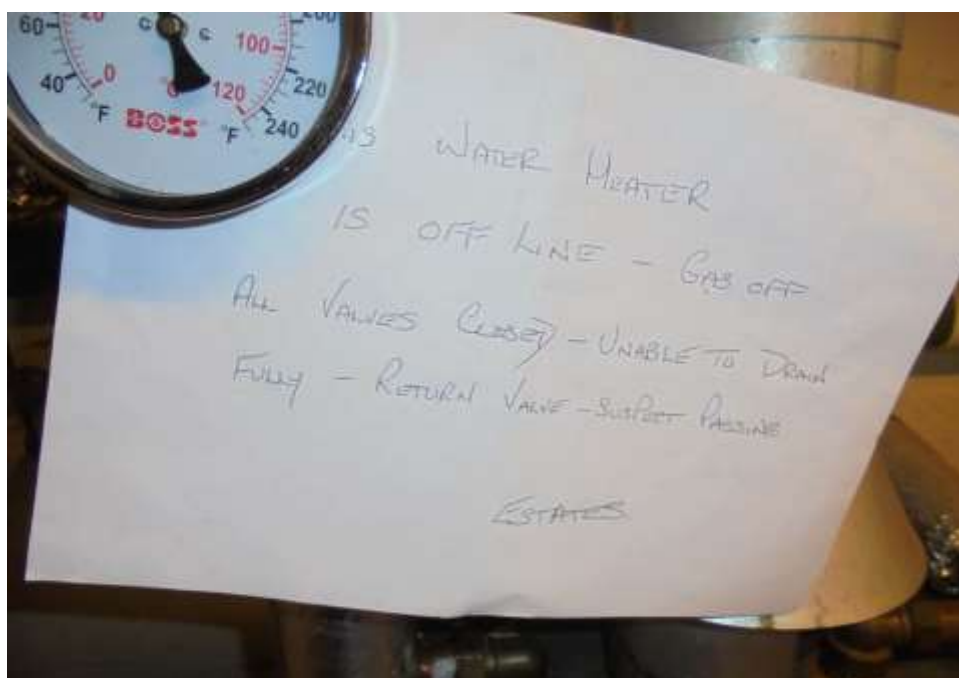 60 20 C C 100 200
40 0 120 220
°F BOSS °F 240
WATER HEATER
IS OFF LINE - GAS OFF
ALL VALVES CLOSED - UNABLE TO DRAIN
FULLY - RETURN VALVE - SUSPECT PASSING
ESTATES